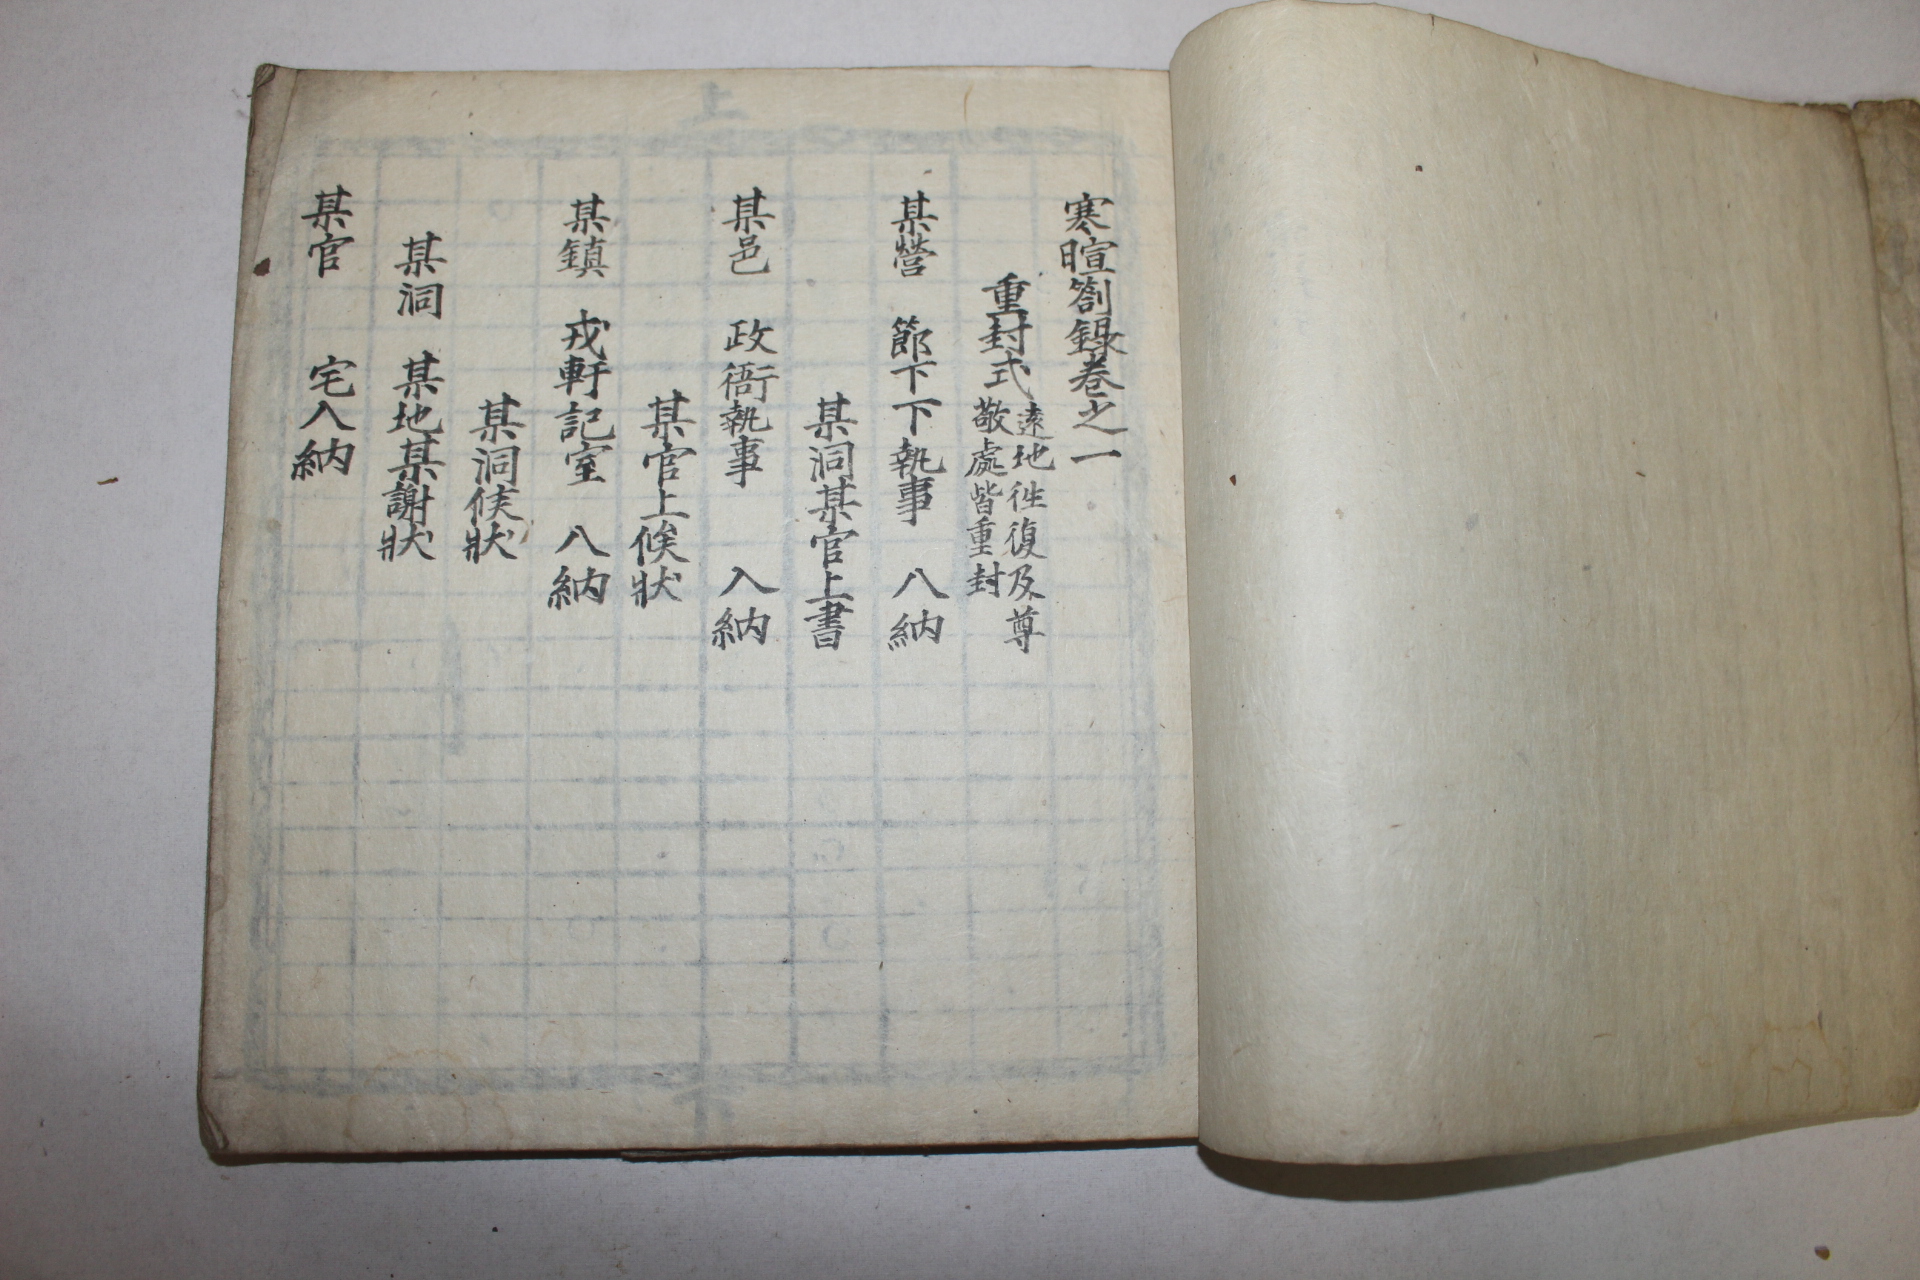 寒暄劄錄卷之一
重封式 遠地徃復及尊敬處皆重封
某營 節下下執事 入納
某洞某官上書
某邑 政衙執事 入納
某官上候狀
某鎮 戎軒記室 入納
某洞候狀
某洞 某地某謝狀
某官 宅入納